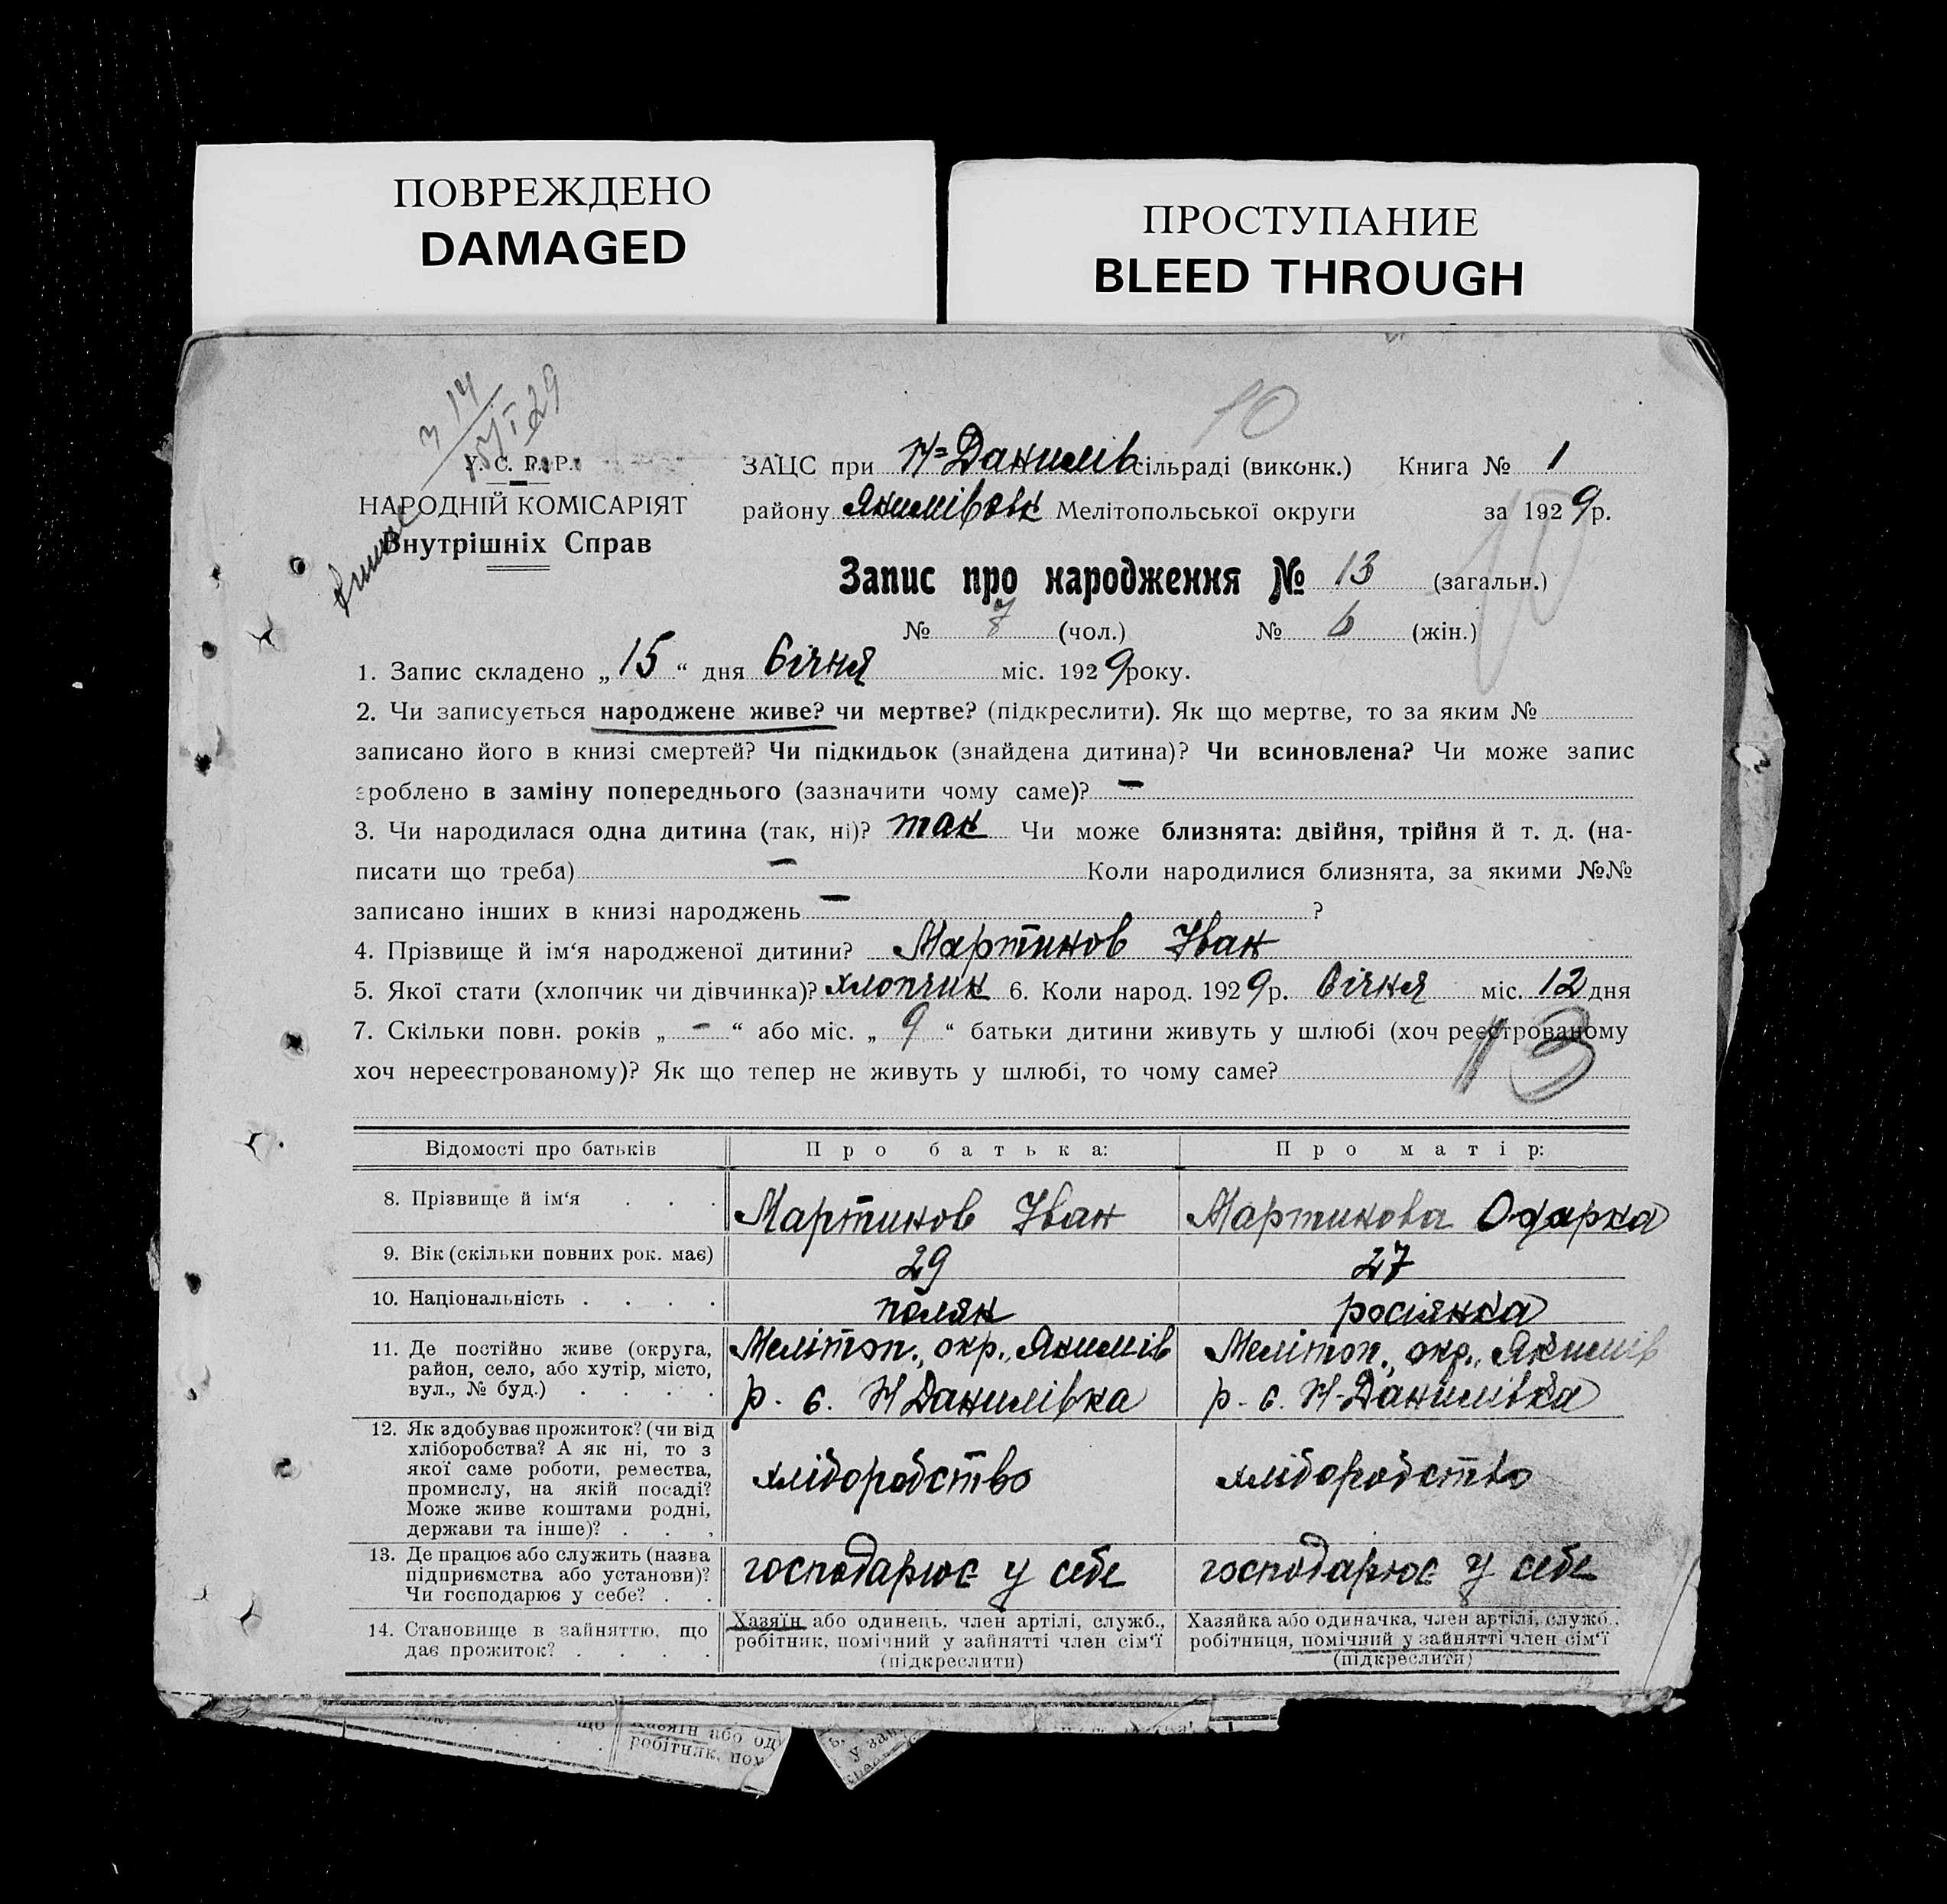 ПОВРЕЖДЕНО
DAMAGED
ПРОСТУПАНИЕ
BLEED THROUGH
10
У. С. Р. Р.
НАРОДНІЙ КОМІСАРІЯТ
Внутрішніх Справ
ЗАЦС при Н-Данилів сільраді (виконк.) Книга № 1
району Якимівськ Мелітопольської округи за 1929р.
Запис про народження № 13 (загальн.)
10
№ 7 (чол.) № 6 (жін.)
1. Запис складено „15“ дня Січня міс. 1929 року.
2. Чи записується народжене живе? чи мертве? (підкреслити). Як що мертве, то за яким №
записано його в книзі смертей? Чи підкидьок (знайдена дитина)? Чи всиновлена? Чи може запис
зроблено в заміну попереднього (зазначити чому саме)? —
3. Чи народилася одна дитина (так, ні)? так Чи може близнята: двійня, трійня й т. д. (на-
писати що треба) — Коли народилися близнята, за якими №№
записано інших в книзі народжень — ?
4. Прізвище й ім‘я народженої дитини? Мартинов Іван
5. Якої стати (хлопчик чи дівчинка)? хлопчик 6. Коли народ. 1929р. Січня міс. 12 дня
7. Скільки повн. років „-“ або міс. „9“ батьки дитини живуть у шлюбі (хоч реєстрованому
хоч нереєстрованому)? Як що тепер не живуть у шлюбі, то чому саме?
13
Відомості про батьків Про батька: Про матір:
8. Прізвище й ім‘я . . . Мартинов Іван Мартинова Одарка
9. Вік (скільки повних рок. має) 29 27
10. Національність . . . . поляк росіянка
11. Де постійно живе (округа,
район, село, або хутір, місто,
вул., № буд.) . . . .
Мелітоп., окр., Якимів
р. с. Н Данилівка
Мелітоп., окр., Якимів
р. с. Н-Данилівка
12. Як здобуває прожиток? (чи від
хліборобства? А як ні, то з
якої саме роботи, ремества,
промислу, на якій посаді?
Може живе коштами родні,
держави та інше)? . . .
хліборобство
хліборобство
13. Де працює або служить (назва
підприємства або установи)?
Чи господарює у себе? . .
господарює у себе
господарює у себе
14. Становище в зайняттю, що
дає прожиток? . . . .
Хазяїн або одинець, член артілі, служб.,
робітник, помічний у зайнятті член сім‘ї
(підкреслити)
Хазяйка або одиначка, член артілі, служб.,
робітниця, помічний у зайнятті член сім‘ї
(підкреслити)
Хазяїн або од
робітник, пом